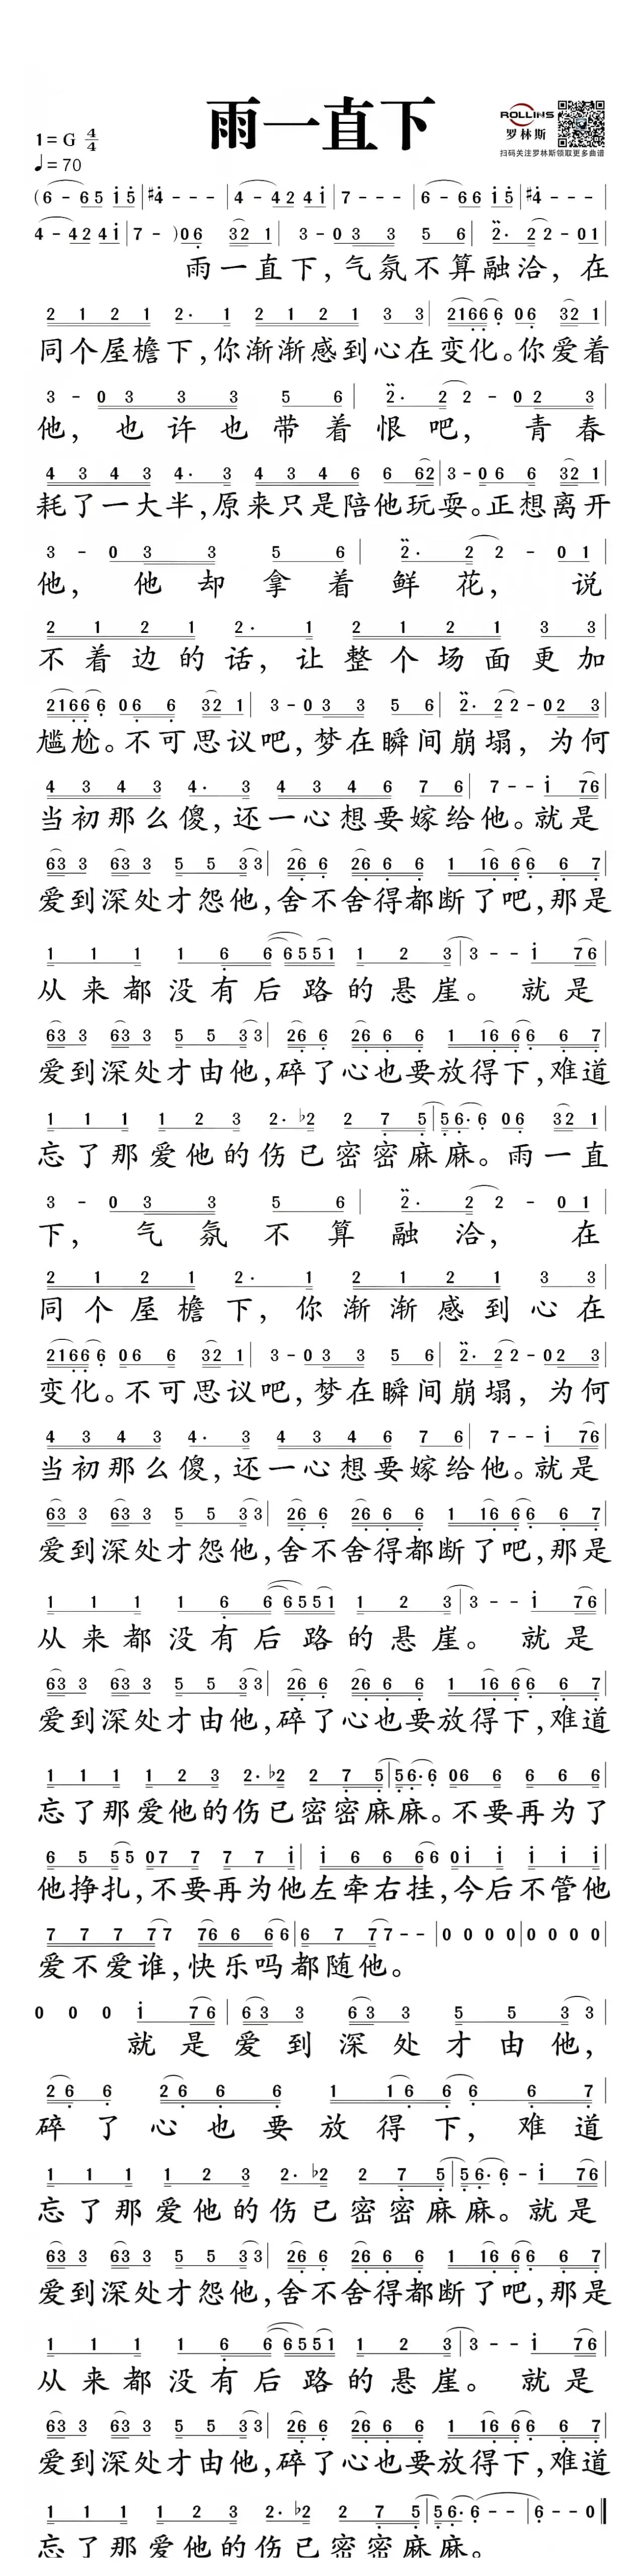 雨一直下
ROLLINS
罗林斯
扫码关注罗林斯领取更多曲谱
1=G 4/4
♩=70
(6 - 65 i5|#4 - - -|4 - 42 4i|7 - - -|6 - 66 i5|#4 - - -|
4 - 42 4i|7 - )06 32 1|3 - 03 3 5 6|2· 22 - 01|
雨一直下,气氛不算融洽,在
2 1 2 1 2· 1 2 1 2 1 3 3|2166 6 06 32 1|
同个屋檐下,你渐渐感到心在变化。你爱着
3 - 0 3 3 3 5 6|2· 2 2 - 0 2 3|
他,也许也带着恨吧,青春
4 3 4 3 4· 3 4 3 4 6 6 62|3 - 06 6 32 1|
耗了一大半,原来只是陪他玩耍。正想离开
3 - 0 3 3 5 6|2· 2 2 - 0 1|
他,他却拿着鲜花,说
2 1 2 1 2· 1 2 1 2 1 3 3|
不着边的话,让整个场面更加
2166 6 06 6 32 1|3 - 03 3 5 6|2· 22 - 02 3|
尴尬。不可思议吧,梦在瞬间崩塌,为何
4 3 4 3 4· 3 4 3 4 6 7 6|7 - - i 76|
当初那么傻,还一心想要嫁给他。就是
63 3 63 3 5 5 33|26 6 26 6 6 1 16 66 6 7|
爱到深处才怨他,舍不舍得都断了吧,那是
1 1 1 1 6 6 6551 1 2 3|3 - - i 76|
从来都没有后路的悬崖。就是
63 3 63 3 5 5 33|26 6 26 6 6 1 16 66 6 7|
爱到深处才由他,碎了心也要放得下,难道
1 1 1 1 2 3 2· b2 2 7 5|56· 6 06 32 1|
忘了那爱他的伤已密密麻麻。雨一直
3 - 0 3 3 5 6|2· 2 2 - 0 1|
下,气氛不算融洽,在
2 1 2 1 2· 1 2 1 2 1 3 3|
同个屋檐下,你渐渐感到心在
2166 6 06 6 32 1|3 - 03 3 5 6|2· 22 - 02 3|
变化。不可思议吧,梦在瞬间崩塌,为何
4 3 4 3 4· 3 4 3 4 6 7 6|7 - - i 76|
当初那么傻,还一心想要嫁给他。就是
63 3 63 3 5 5 33|26 6 26 6 6 1 16 66 6 7|
爱到深处才怨他,舍不舍得都断了吧,那是
1 1 1 1 6 6 6551 1 2 3|3 - - i 76|
从来都没有后路的悬崖。就是
63 3 63 3 5 5 33|26 6 26 6 6 1 16 66 6 7|
爱到深处才由他,碎了心也要放得下,难道
1 1 1 1 2 3 2· b2 2 7 5|56· 6 06 6 6 6 6|
忘了那爱他的伤已密密麻麻。不要再为了
6 5 55 07 7 7 7 i|i 6 6 66 0i i i i i|
他挣扎,不要再为他左牵右挂,今后不管他
7 7 7 77 76 6 66|6 7 77 - -|0 0 0 0|0 0 0 0|
爱不爱谁,快乐吗都随他。
0 0 0 i 76|63 3 63 3 5 5 3 3|
就是爱到深处才由他,
26 6 26 6 6 1 16 66 6 7|
碎了心也要放得下,难道
1 1 1 1 2 3 2· b2 2 7 5|56· 6 - i 76|
忘了那爱他的伤已密密麻麻。就是
63 3 63 3 5 5 33|26 6 26 6 6 1 16 66 6 7|
爱到深处才怨他,舍不舍得都断了吧,那是
1 1 1 1 6 6 6551 1 2 3|3 - - i 76|
从来都没有后路的悬崖。就是
63 3 63 3 5 5 33|26 6 26 6 6 1 16 66 6 7|
爱到深处才由他,碎了心也要放得下,难道
1 1 1 1 2 3 2· b2 2 7 5|56· 6 - -|6 - - 0‖
忘了那爱他的伤已密密麻麻。